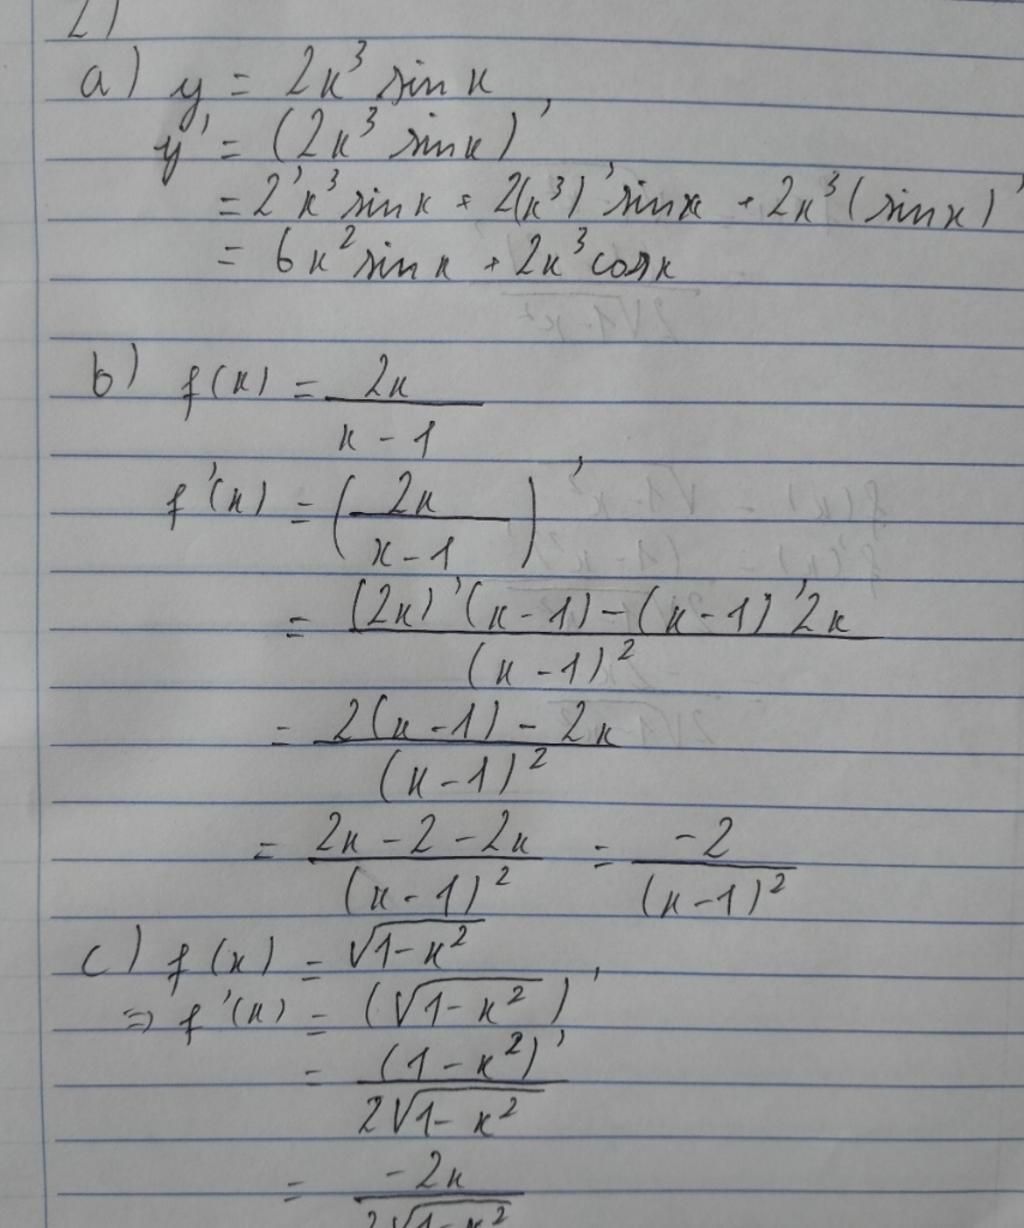 2)
a) y = 2x³ sin x
y' = (2x³ sin x)'
= 2'x³ sin x + 2(x³)' sin x + 2x³ (sin x)'
= 6x² sin x + 2x³ cos x
b) f(x) = 2x / (x - 1)
f'(x) = (2x / (x - 1))'
= ((2x)'(x - 1) - (x - 1)'2x) / (x - 1)²
= (2(x - 1) - 2x) / (x - 1)²
= (2x - 2 - 2x) / (x - 1)² = -2 / (x - 1)²
c) f(x) = √(1 - x²)
⇒ f'(x) = (√(1 - x²))'
= (1 - x²)' / (2√(1 - x²))
= -2x / (2√(1 - x²))